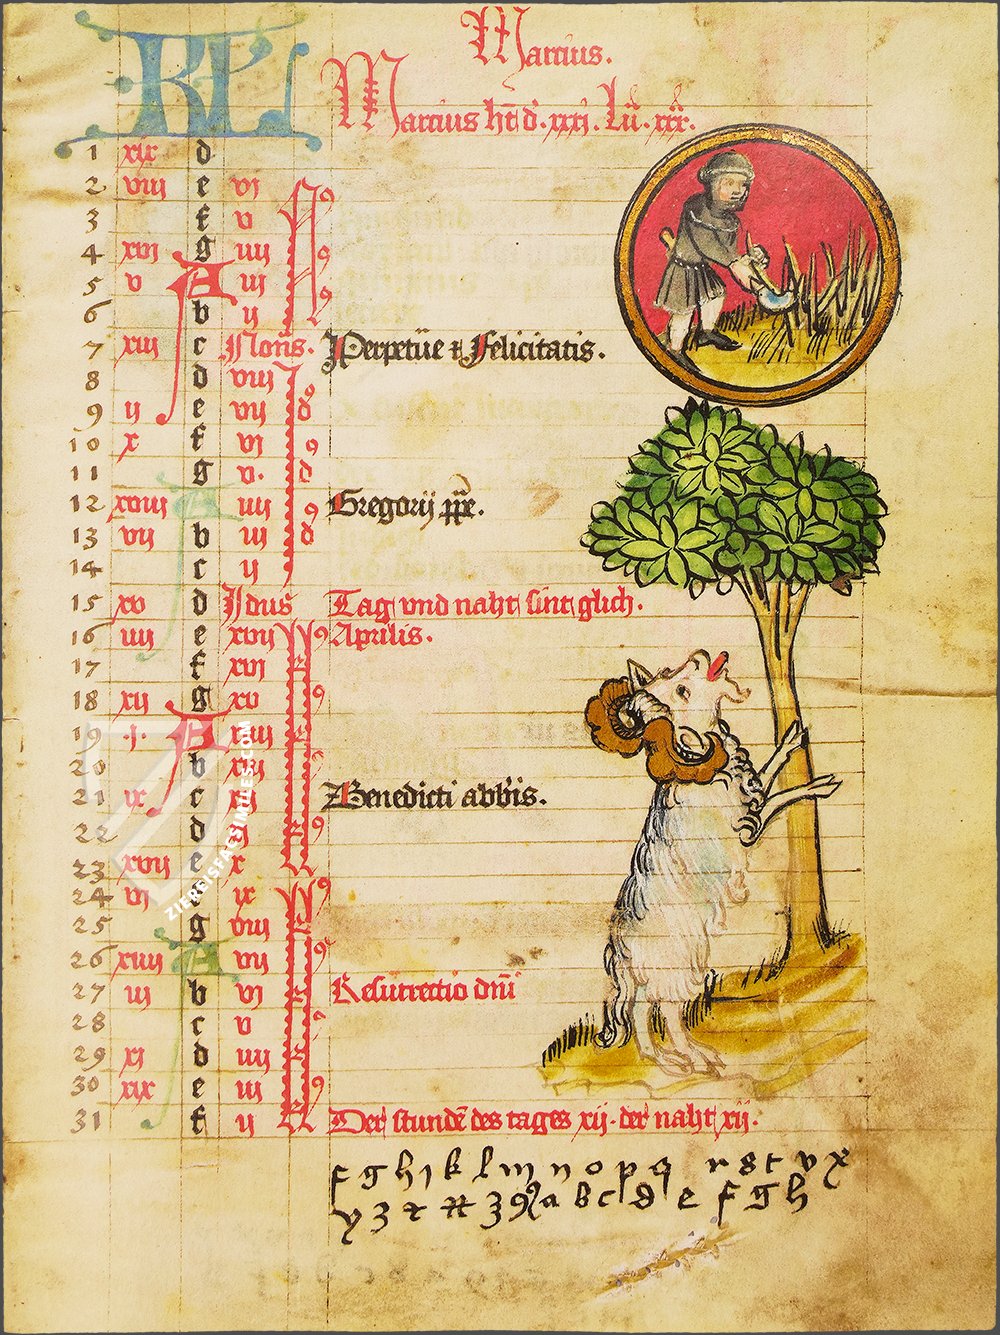 KL Marcius.
Marcius ht d. xxxj. Lu. xxx.
1 xix d
2 viii e vj N9
3 f v
4 xvj g iiij 9
5 v A iij
6 b ij 9
7 xiij c Nons. Perpetue t Felicitatis.
8 d viij J9
9 ij e vij d
10 x f vj 9
11 g v. d
12 xviij A iiij 9 Gregorij ppe.
13 vij b iij d
14 c ij
15 xv d Jdus Tag vnd naht sint glich.
16 iiij e xvij 9 Aprilis.
17 f xvj
18 xij g xv 9
19 .j. A xiiij
20 b xiij 9
21 ix c xij Benedicti abbis.
22 d xj 9
23 xvij e x
24 vj f ix 9
25 g viij
26 xiiij A vij 9
27 iij b vj Resurrectio dni
28 c v 9
29 xj d iiij
30 xix e iij 9
31 f ij Der stunde des tages xij. der naht xij.
f g h i k l m n o p q r s t v x
y z t 3 9 a b c d e f g h
ZIEREISFACSIMILES.COM